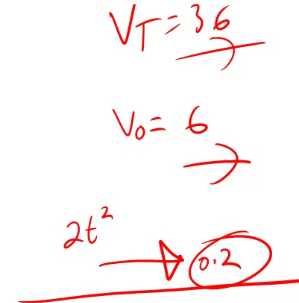 V_T = 36
V_0 = 6
2t²
0.2